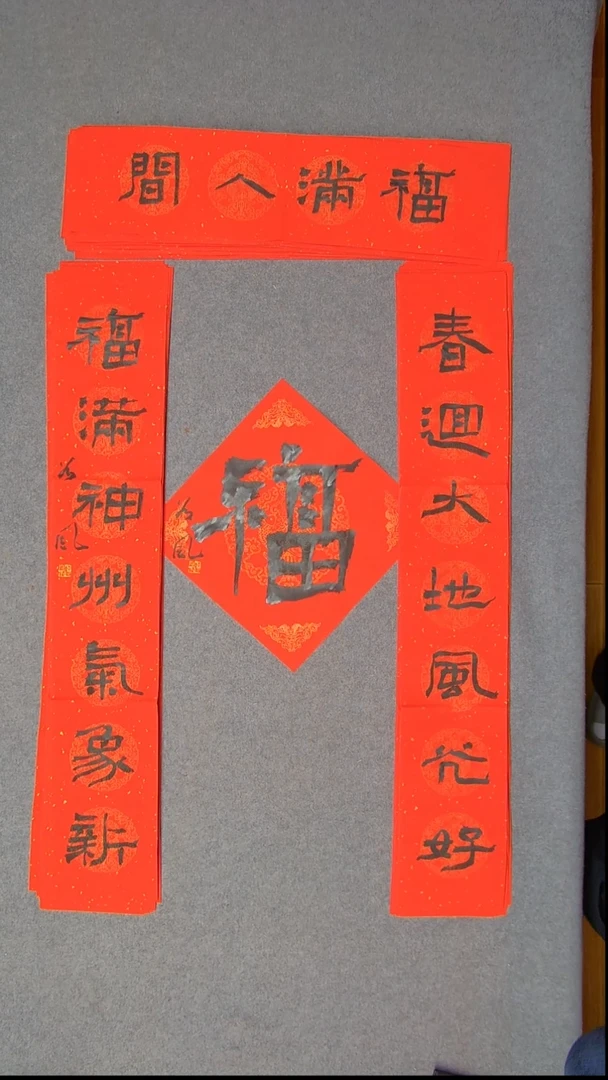 福滿人間
春迴大地風光好
福
福滿神州氣象新